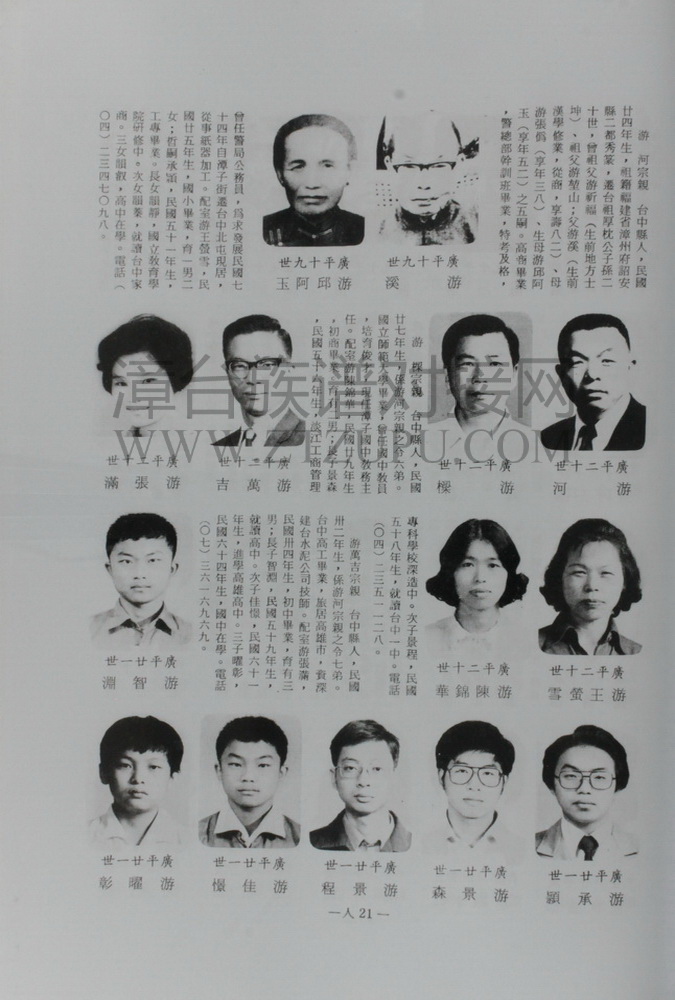 游　河宗親　台中縣人，民國
廿四年生，祖籍福建省漳州府詔安
縣二都秀篆，遷台祖厚枕公子孫二
十世，曾祖父游祈福（生前地方士
坤）、祖父游堃山；父游溪（生前
漢學修業，從商，享壽八二）、母
游張僞（享年三八）、生母游邱阿
玉（享年五二）之五嗣。高商畢業
，警總部幹訓班畢業，特考及格，
曾任警局公務員，為求發展民國七
十四年自潭子街遷台中北屯現居，
從事紙器加工。配室游王螢雪，民
國廿五年生，國小畢業，育一男二
女；哲嗣承穎，民國五十一年生，
工專畢業。長女韻靜，國立教育學
院研修中。次女韻蓁，就讀台中家
商。三女韻叡，高中在學。電話（
〇四）二三四七〇九八。
世九十平廣
溪　　游
世九十平廣
玉阿邱游
游　樑宗親　台中縣人，民國
廿七年生，係游河宗親之令六弟。
國立師範大學畢業，曾任國中教員
，培育俊才，現任潭子國中教務主
任。配室游陳錦華，民國廿九年生
，初商畢業，育有二男；長子景森
，民國五十六年生，淡江工商管理
世十二平廣
河　　游
世十二平廣
樑　　游
世十二平廣
吉萬游
世十二平廣
滿張游
專科學校深造中。次子景程，民國
五十八年生，就讀台中一中。電話
（〇四）二三五一一二八。
游萬吉宗親　台中縣人，民國
卅二年生，係游河宗親之令七弟。
台中高工畢業，旅居高雄市，資深
建台水泥公司技師。配室游張滿，
民國卅四年生，初中畢業，育有三
男；長子智淵，民國五十九年生，
就讀高中。次子佳憬，民國六十一
年生，進學高雄高中。三子曜彰，
民國六十四年生，國中在學。電話
（〇七）三六一六九六九。
世十二平廣
雪螢王游
世十二平廣
華錦陳游
世一廿平廣
淵智游
世一廿平廣
穎承游
世一廿平廣
森景游
世一廿平廣
程景游
世一廿平廣
憬佳游
世一廿平廣
彰曜游
—人 21—
漳台族谱对接网
WWW.ZTZUPU.COM